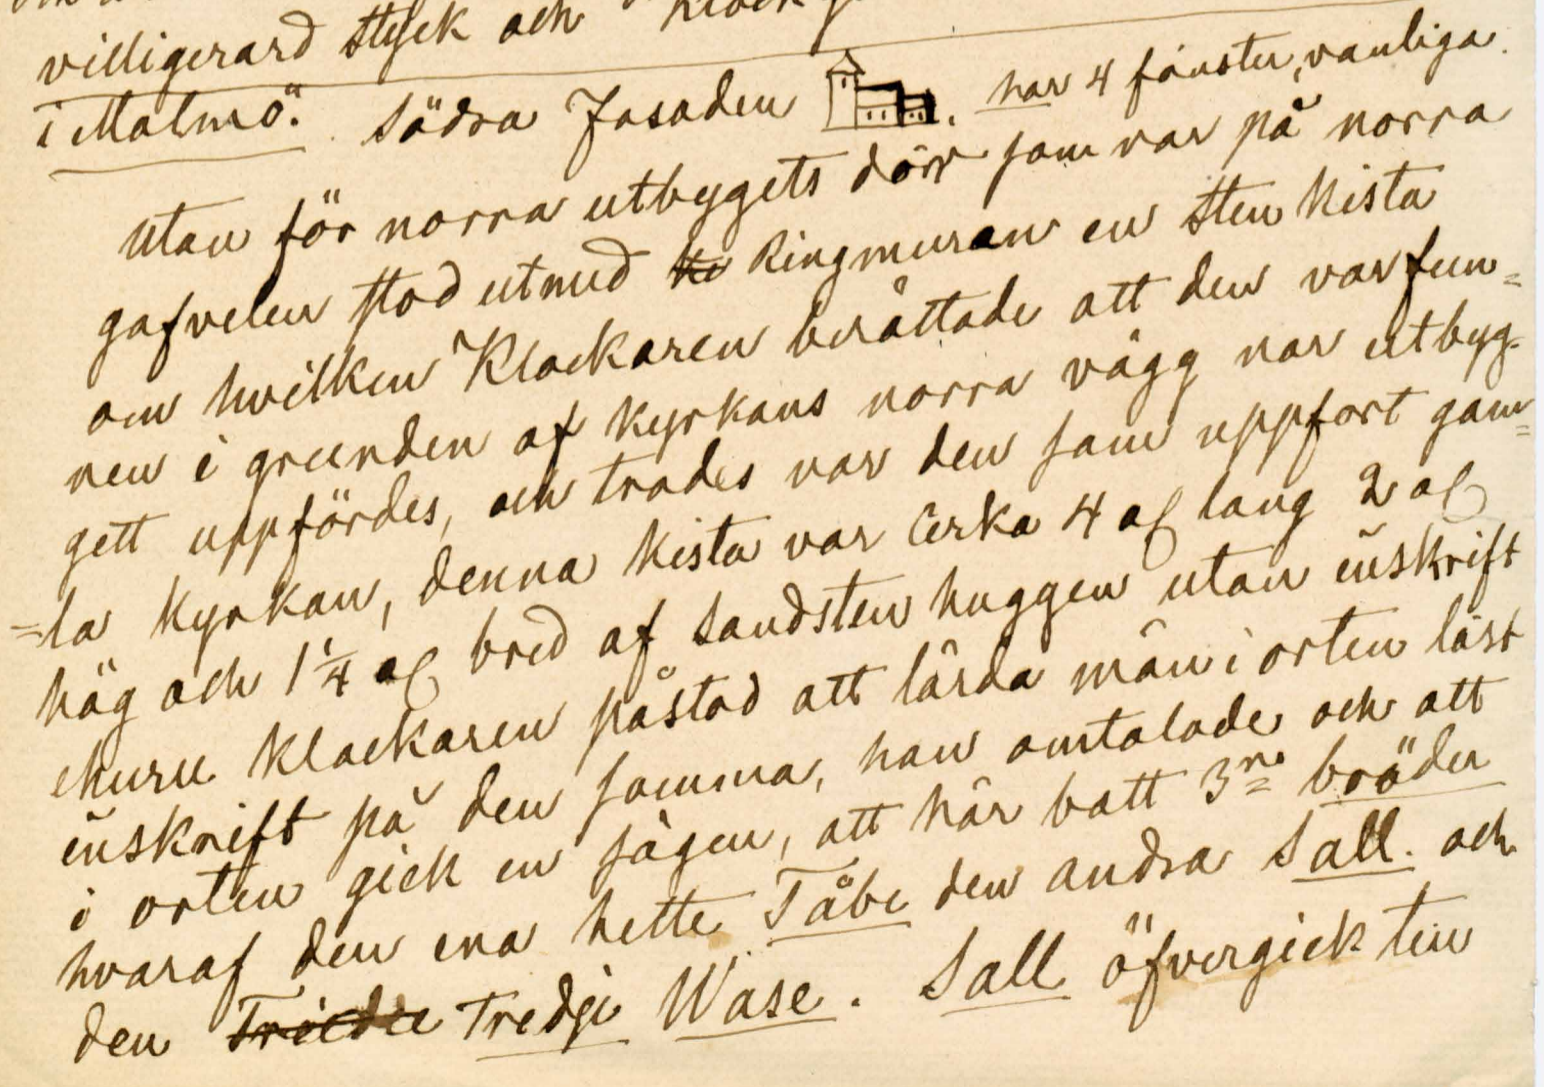 villigerard styck och
i Malmö. södra Fasaden . har 4 fönster, vanliga.
utan för norra utbygets dörr som var på norra
gafvelen stod utmed Ringmuran en sten kista
om hvilken Klockaren berättade att den var fun=
nen i grunden af kyrkans norra vägg nar utbyg-
gett uppfördes, och trodes var den som uppfort gam=
=la kyrkan, denna kista var Cirka 4 al lang 2 al
hög och 1 1/4 al bred af sandsten huggen utan inskrift
ehuru klockaren påstod att lärda män i orten läst
inskrift på den samma, han omtalade och att
i orten gick en sägen, att här bott 3ne bröder
hvaraf den ena hette Tåbe den andra Sall. och
den Tredje Wase. Sall öfvergick ten